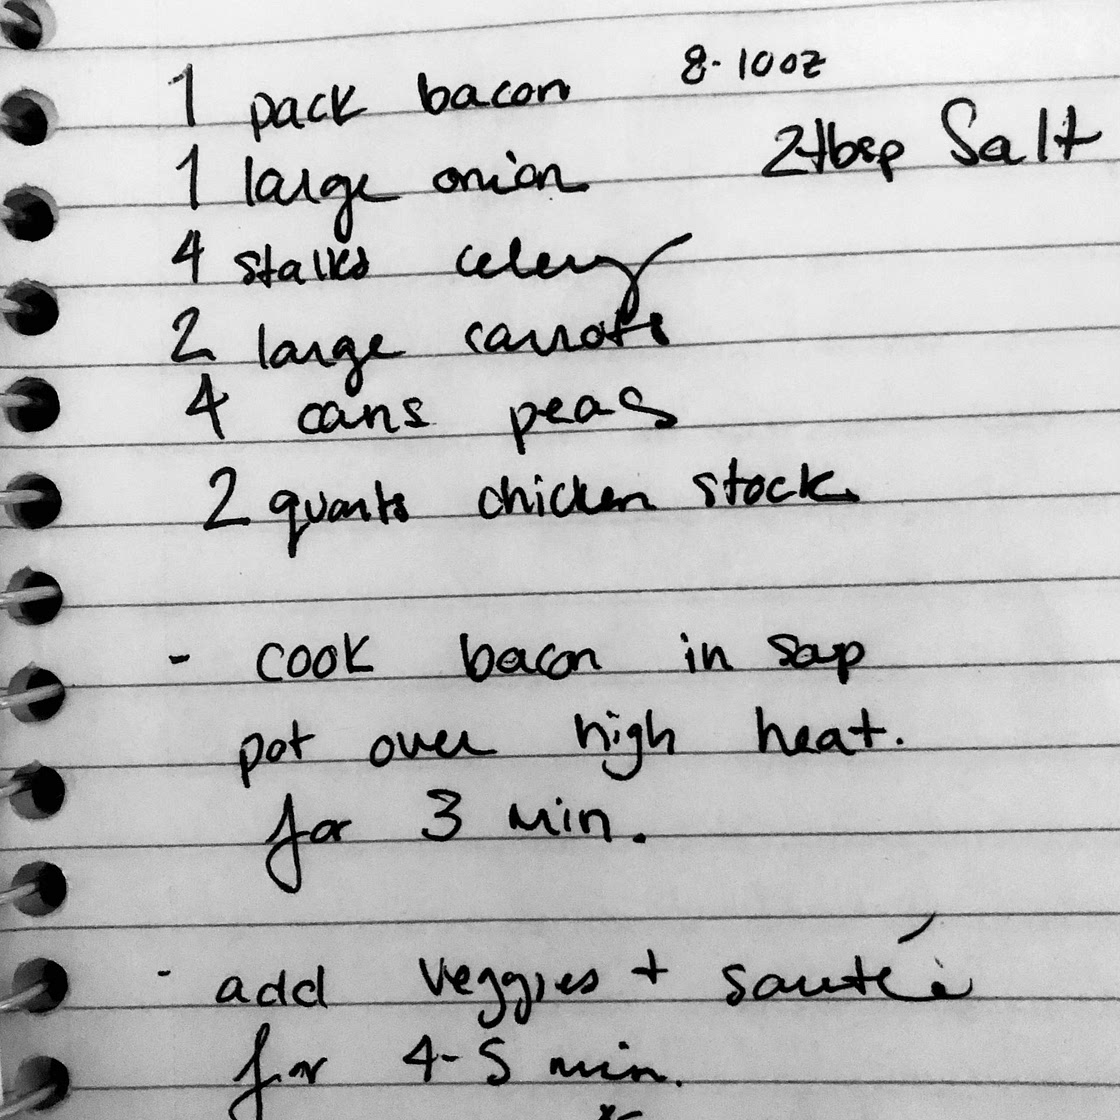 1 pack bacon 8-10oz
2 tbsp Salt
1 large onion
4 stalks celery
2 large carrots
4 cans peas
2 quarts chicken stock
- cook bacon in soup
pot over high heat.
for 3 min.
- add veggies + sauté
for 4-5 min.